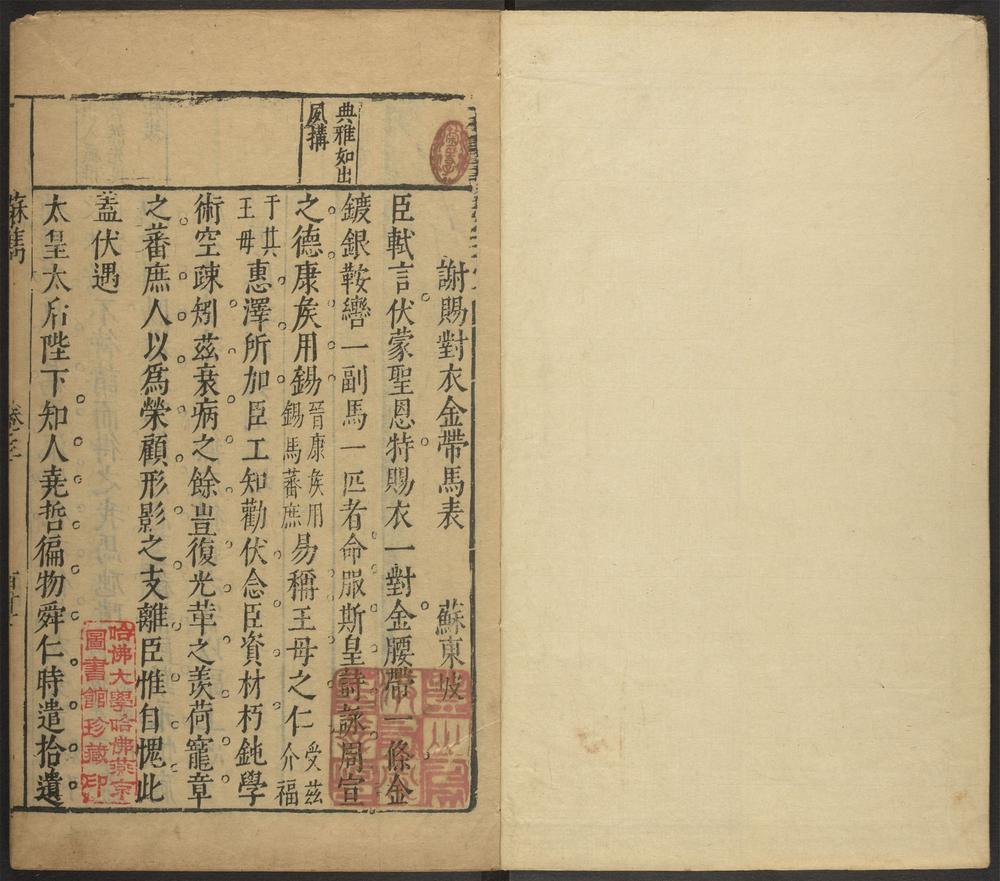 謝賜對衣金帶馬表 蘇東坡
臣軾言伏蒙聖恩特賜衣一對金腰帶一條金
鍍銀鞍轡一副馬一匹者命服斯皇詩詠周宣
之德康矦用錫晉康矦用錫馬蕃庶易稱王母之仁受茲介福
于其王母惠澤所加臣工知勸伏念臣資材朽鈍學
術空疎矧茲衰病之餘豈復光華之羨荷寵章
之蕃庶人以爲榮顧形影之支離臣惟自愧此
蓋伏遇
太皇太后陛下知人堯哲徧物舜仁時遣拾遺
典雅如出
夙搆
蘇雋
卷之三
哈佛大學哈佛燕京
圖書館珍藏印